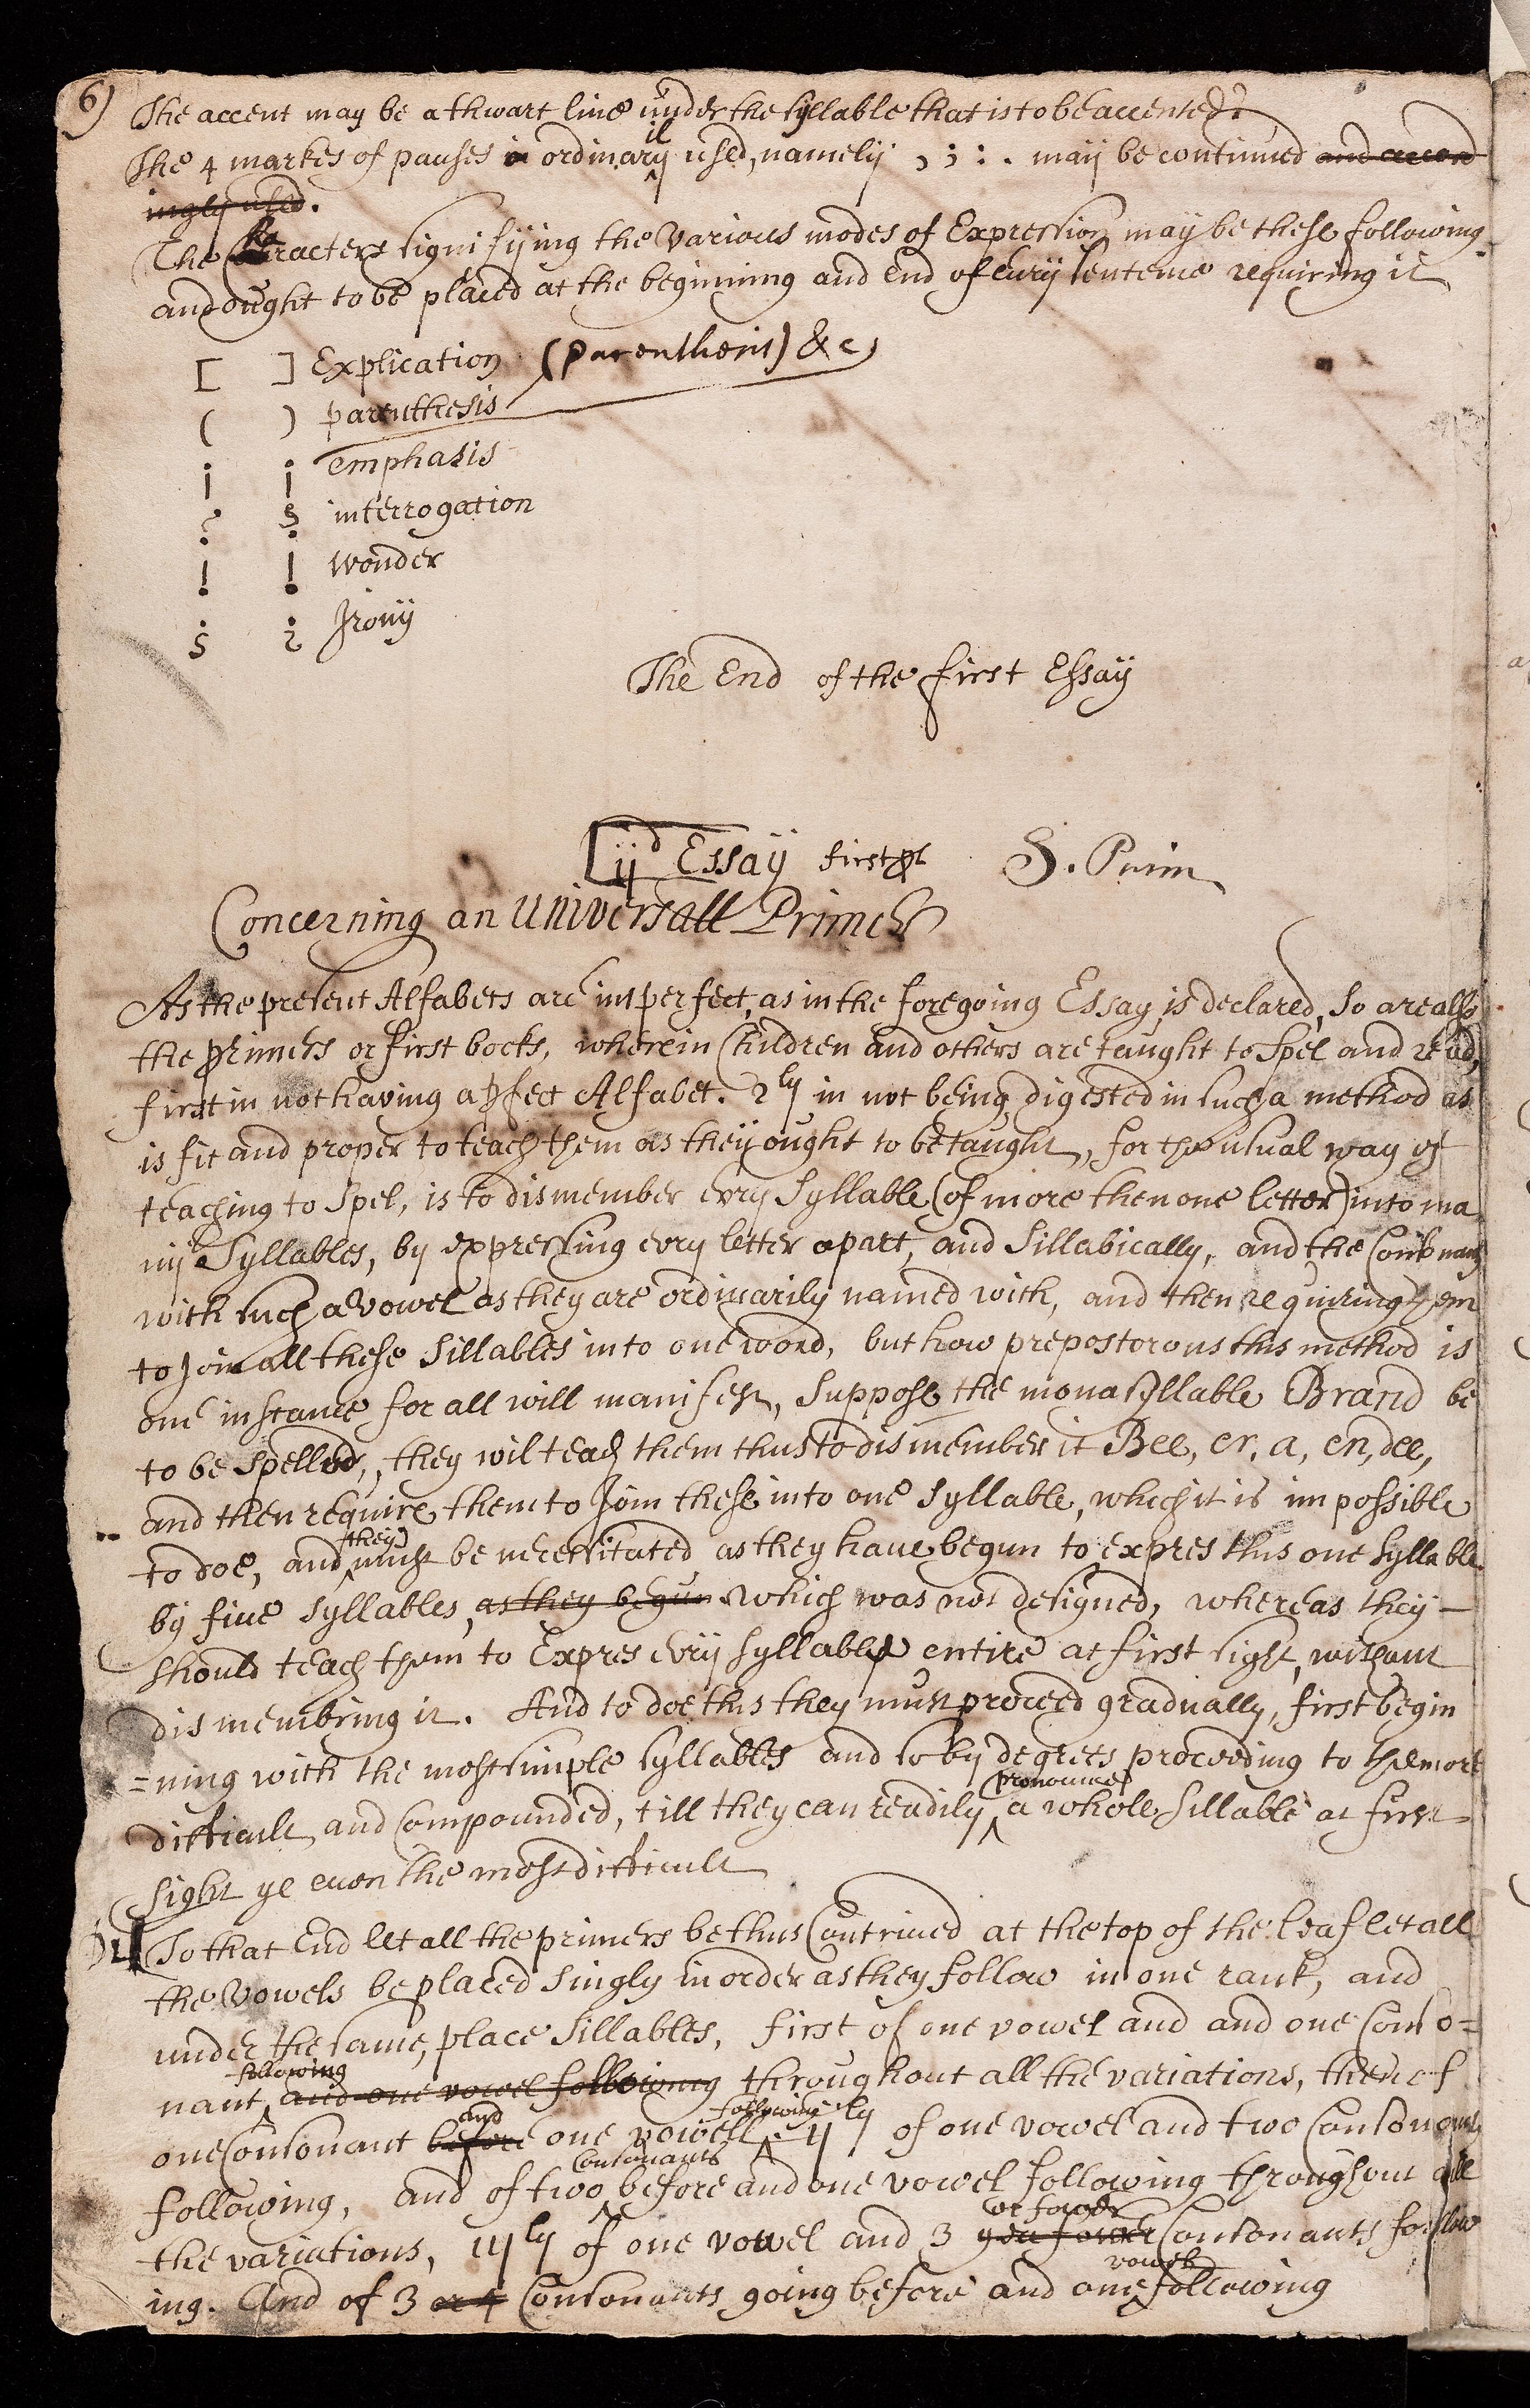 6)
The accent may be athwart line under the syllable that is to be accented.
The 4 markes of pauses ordinarily used, namely , ; : . may be continued and accord
ingly used.
The characters signifying the various modes of Expression may be these following
and ought to be placed at the beginning and end of evry sentence requiring it
[ ] Explication (parenthesis) &c
( ) parenthesis
¡ ¡ emphasis
? interrogation
! ! wonder
¿ Irony
The End of the first Essay
ijd Essay first S. Prim
Concerning an Universall Primer
As the present Alfabets are imperfect, as in the foregoing Essay is declared, so are also
the primers or first books, wherein Children and others are taught to Spel and read,
first in not having a pfect Alfabet. 2ly in not being digested in such a method as
is fit and proper to teach them as they ought to be taught, for the usual way of
teaching to Spel, is to dismember evry Syllable (of more then one letter) into ma
ny Syllables, by expressing evry letter apart, and Sillabically, and the Consonants
with such a vowel as they are ordinarily named with, and then requiring them
to Join all these Sillables into one word, but how prepostorous this method is
one instance for all will manifest, Suppose the monasyllable Brand be
to be Spelled, they wil teach them thus to dismember it Bee, er, a, en, dee,
and then require them to Join these into one Syllable, which it is impossible
they
to doe, and must be necessitated as they have begun to expres this one Syllable
by five Syllables, as they begun which was not designed, whereas they
should teach them to Expres evry Syllable entire at first sight, without
dismembring it. And to doe this they must proceed gradually, first begin
=ning with the most simple Syllables and so by degrees proceeding to the more
pronounce
difficult and Compounded, till they can readily a whole Sillable at first
sight ye even the most difficult
To that End let all the primers be thus Contrived at the top of the leaf let all
the Vowels be placed singly in order as they follow in one rank, and
under the same, place Sillables, first of one vowel and and one Conso=
following
nant, and one vowel following throughout all the variations, then of
and following
one Consonant before one vowel. ijly of one vowel and two Consonants
Consonants
following, and of two before and one vowel following throughout all
or fower
the variations, iijly of one vowel and 3 Consonants follow
vowel
ing. And of 3 or 4 Consonants going before and one following